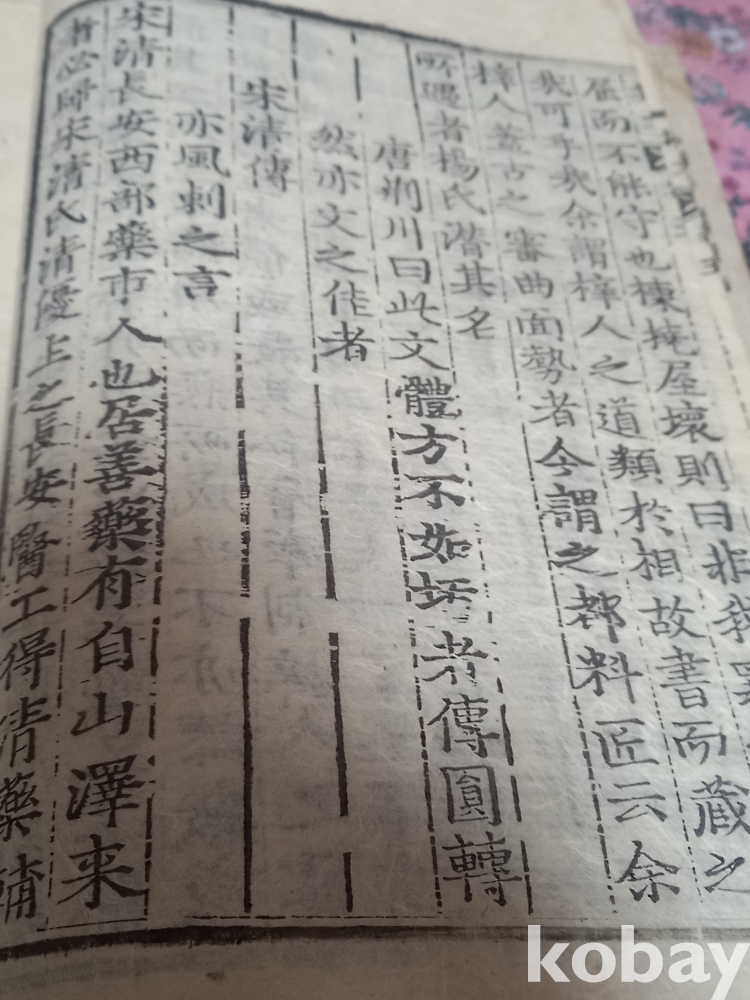 屈而不能守也棟撓屋壞則曰非我罪
哉可乎哉余謂梓人之道類於相故書而藏之
梓人蓋古之審曲面勢者今謂之都料匠云余
所遇者楊氏潛其名
唐荊川曰此文體方不如圬者傳圓轉
然亦文之佳者
宋清傳
亦風刺之言
宋清長安西部藥市人也居善藥有自山澤來
者必歸宋清氏清優主之長安醫工得清藥輔
kobay